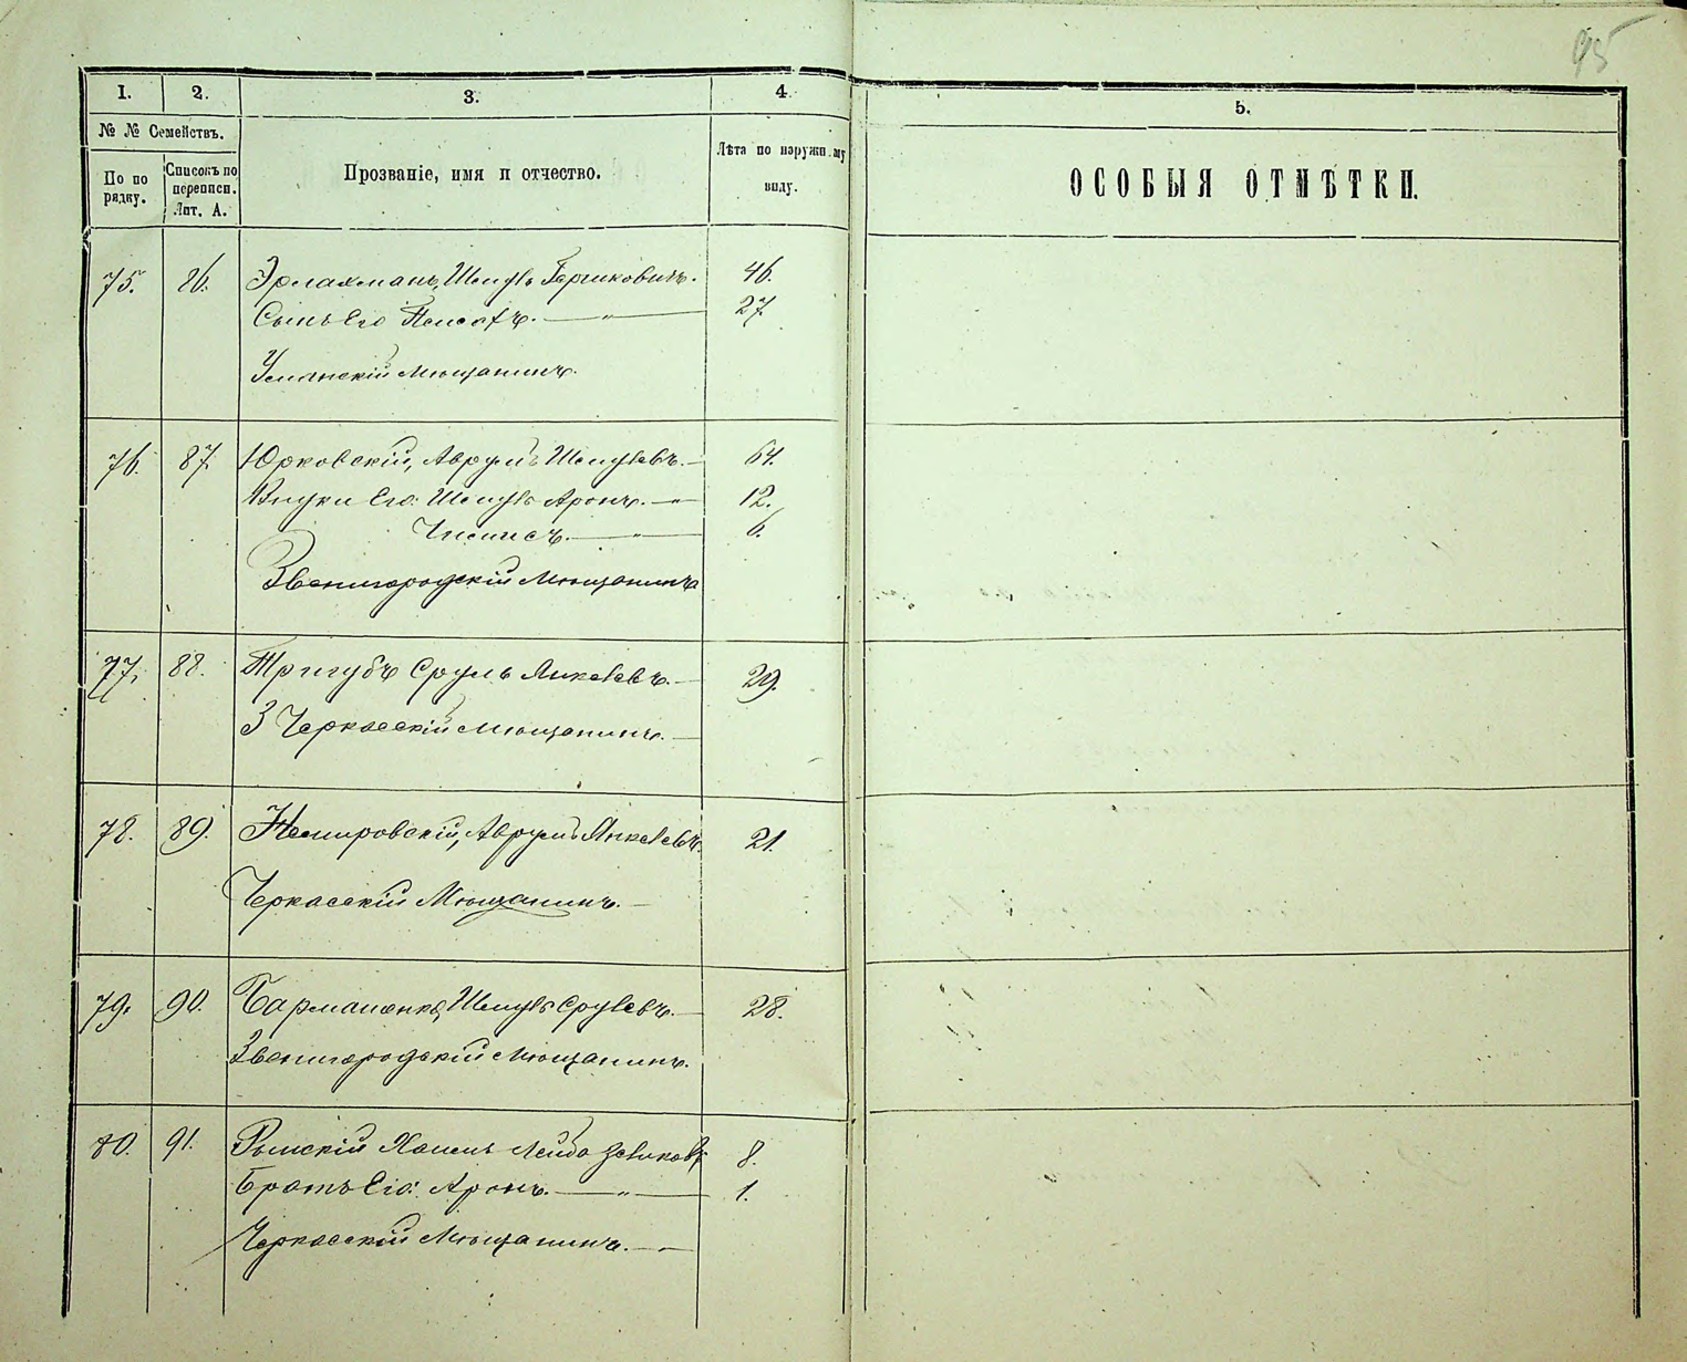 95
1.
2.
3.
4
5.
№ № Семействъ.
По по
рядку.
Списокъ по
переписи.
Лит. А.
Прозваніе, имя и отчество.
Лѣта по наружн.му
виду.
ОСОБЫЯ ОТМѢТКИ.
75. 86. Эрлахманъ, Шмуль Гершковичъ. 46.
Сынъ Его Пейсахъ. — " — 27
Уманскій Мѣщанинъ.
76. 87. Юрковскій, Аврумъ Шмулевъ. — 64.
Внуки Его: Шмуль Аронъ. — " — 12.
— " — 6.
Звенигородскій Мѣщанинъ
77. 88. Тригубъ Сруль Янкелевъ. — 29.
З Черкасскій Мѣщанинъ. —
78. 89. Немировскій, Аврумъ Янкелевъ. 21.
Черкасскій Мѣщанинъ. —
79. 90. Шмуль Срулевъ. — 28.
Звенигородскій Мѣщанинъ.
80. 91. Рымскій Хаимъ Лейба 8.
Братъ Его: Аронъ. — " — 1.
Черкасскій Мѣщанинъ. —